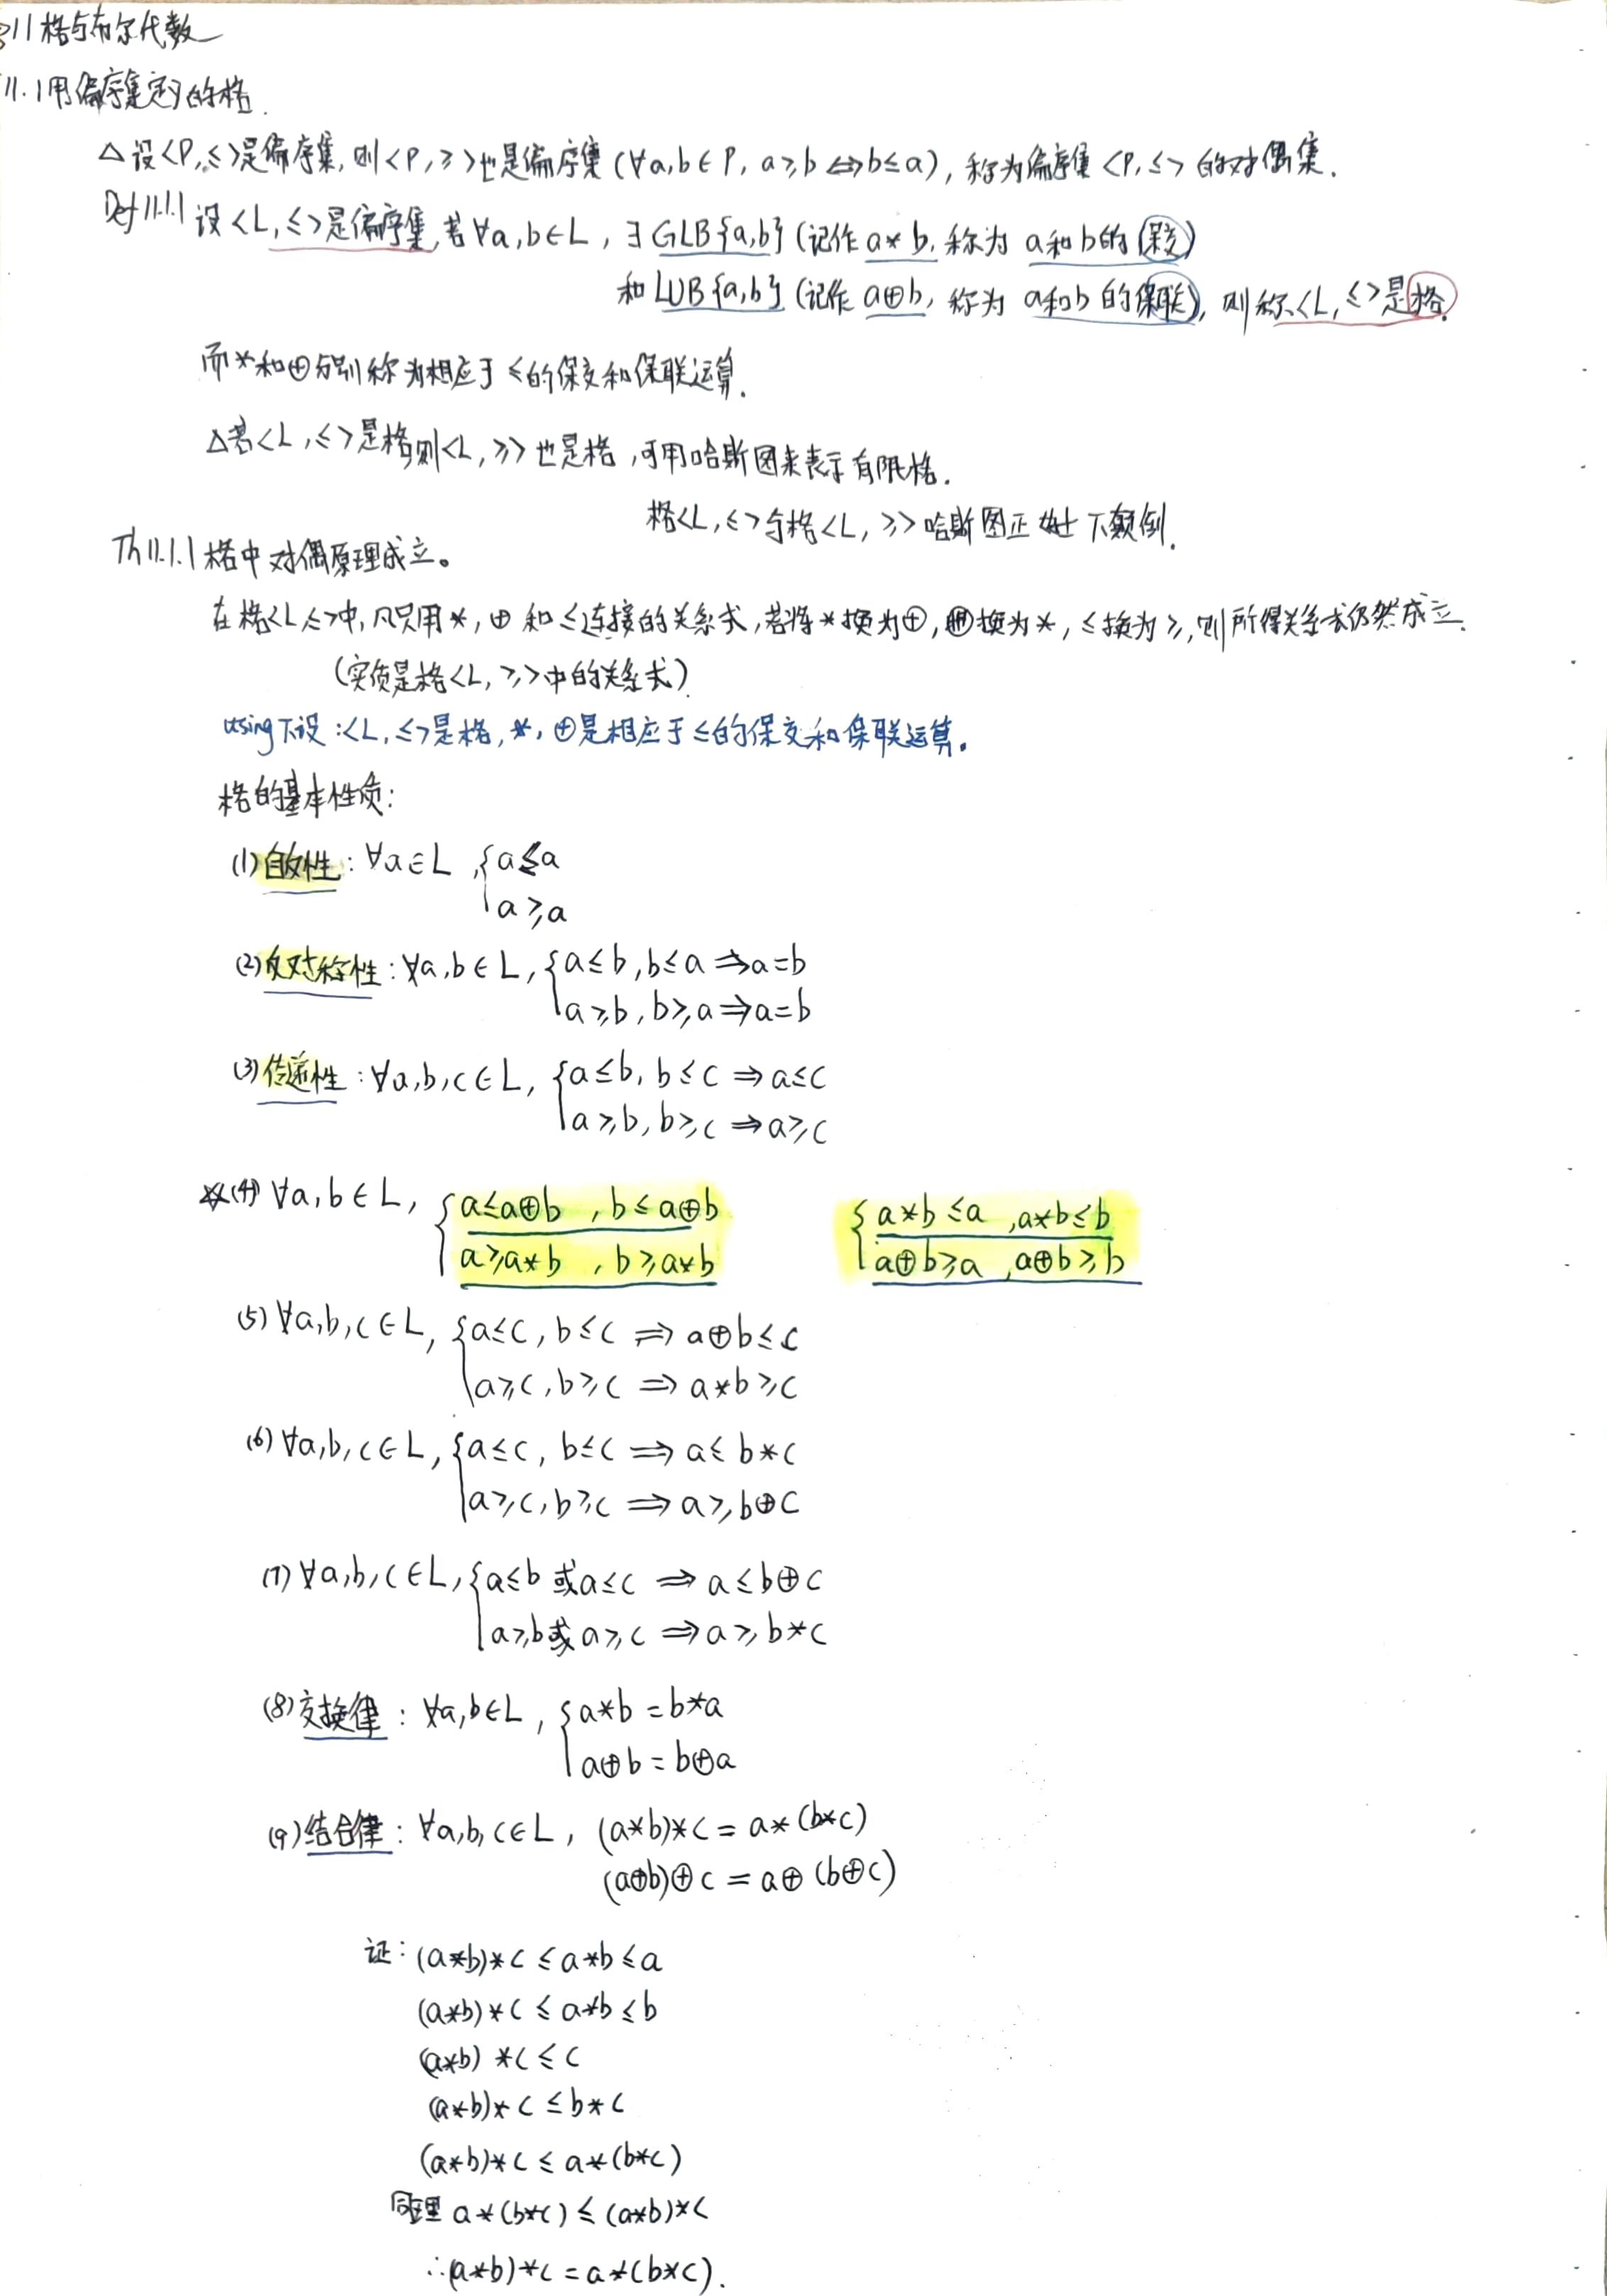 §11 格与布尔代数
11.1 用偏序集定义的格.
△设<P,≤>是偏序集,则<P,≥>也是偏序集(∀a,b∈P, a≥b⇔b≤a),称为偏序集<P,≤>的对偶集.
Def 11.1.1 设<L,≤>是偏序集,若∀a,b∈L, ∃GLB{a,b}(记作a*b,称为a和b的保交)
和LUB{a,b}(记作a⊕b,称为a和b的保联),则称<L,≤>是格.
而*和⊕分别称为相应于≤的保交和保联运算.
△若<L,≤>是格则<L,≥>也是格,可用哈斯图来表示有限格.
格<L,≤>与格<L,≥>哈斯图正好上下颠倒.
Th 11.1.1 格中对偶原理成立。
在格<L,≤>中,凡只用*,⊕和≤连接的关系式,若将*换为⊕,⊕换为*,≤换为≥,则所得关系式仍然成立.
(实质是格<L,≥>中的关系式).
using 下设:<L,≤>是格,*,⊕是相应于≤的保交和保联运算.
格的基本性质:
(1)自反性: ∀a∈L, {a≤a
a≥a
(2)反对称性: ∀a,b∈L, {a≤b,b≤a⇒a=b
a≥b,b≥a⇒a=b
(3)传递性: ∀a,b,c∈L, {a≤b,b≤c⇒a≤c
a≥b,b≥c⇒a≥c
☆(4) ∀a,b∈L, {a≤a⊕b, b≤a⊕b {a*b≤a, a*b≤b
a≥a*b, b≥a*b a⊕b≥a, a⊕b≥b
(5) ∀a,b,c∈L, {a≤c,b≤c⇒a⊕b≤c
a≥c,b≥c⇒a*b≥c
(6) ∀a,b,c∈L, {a≤c,b≤c⇒a≤b*c
a≥c,b≥c⇒a≥b⊕c
(7) ∀a,b,c∈L, {a≤b或a≤c⇒a≤b⊕c
a≥b或a≥c⇒a≥b*c
(8)交换律: ∀a,b∈L, {a*b=b*a
a⊕b=b⊕a
(9)结合律: ∀a,b,c∈L, (a*b)*c=a*(b*c)
(a⊕b)⊕c=a⊕(b⊕c)
证: (a*b)*c≤a*b≤a
(a*b)*c≤a*b≤b
(a*b)*c≤c
(a*b)*c≤b*c
(a*b)*c≤a*(b*c)
同理 a*(b*c)≤(a*b)*c
∴(a*b)*c=a*(b*c).